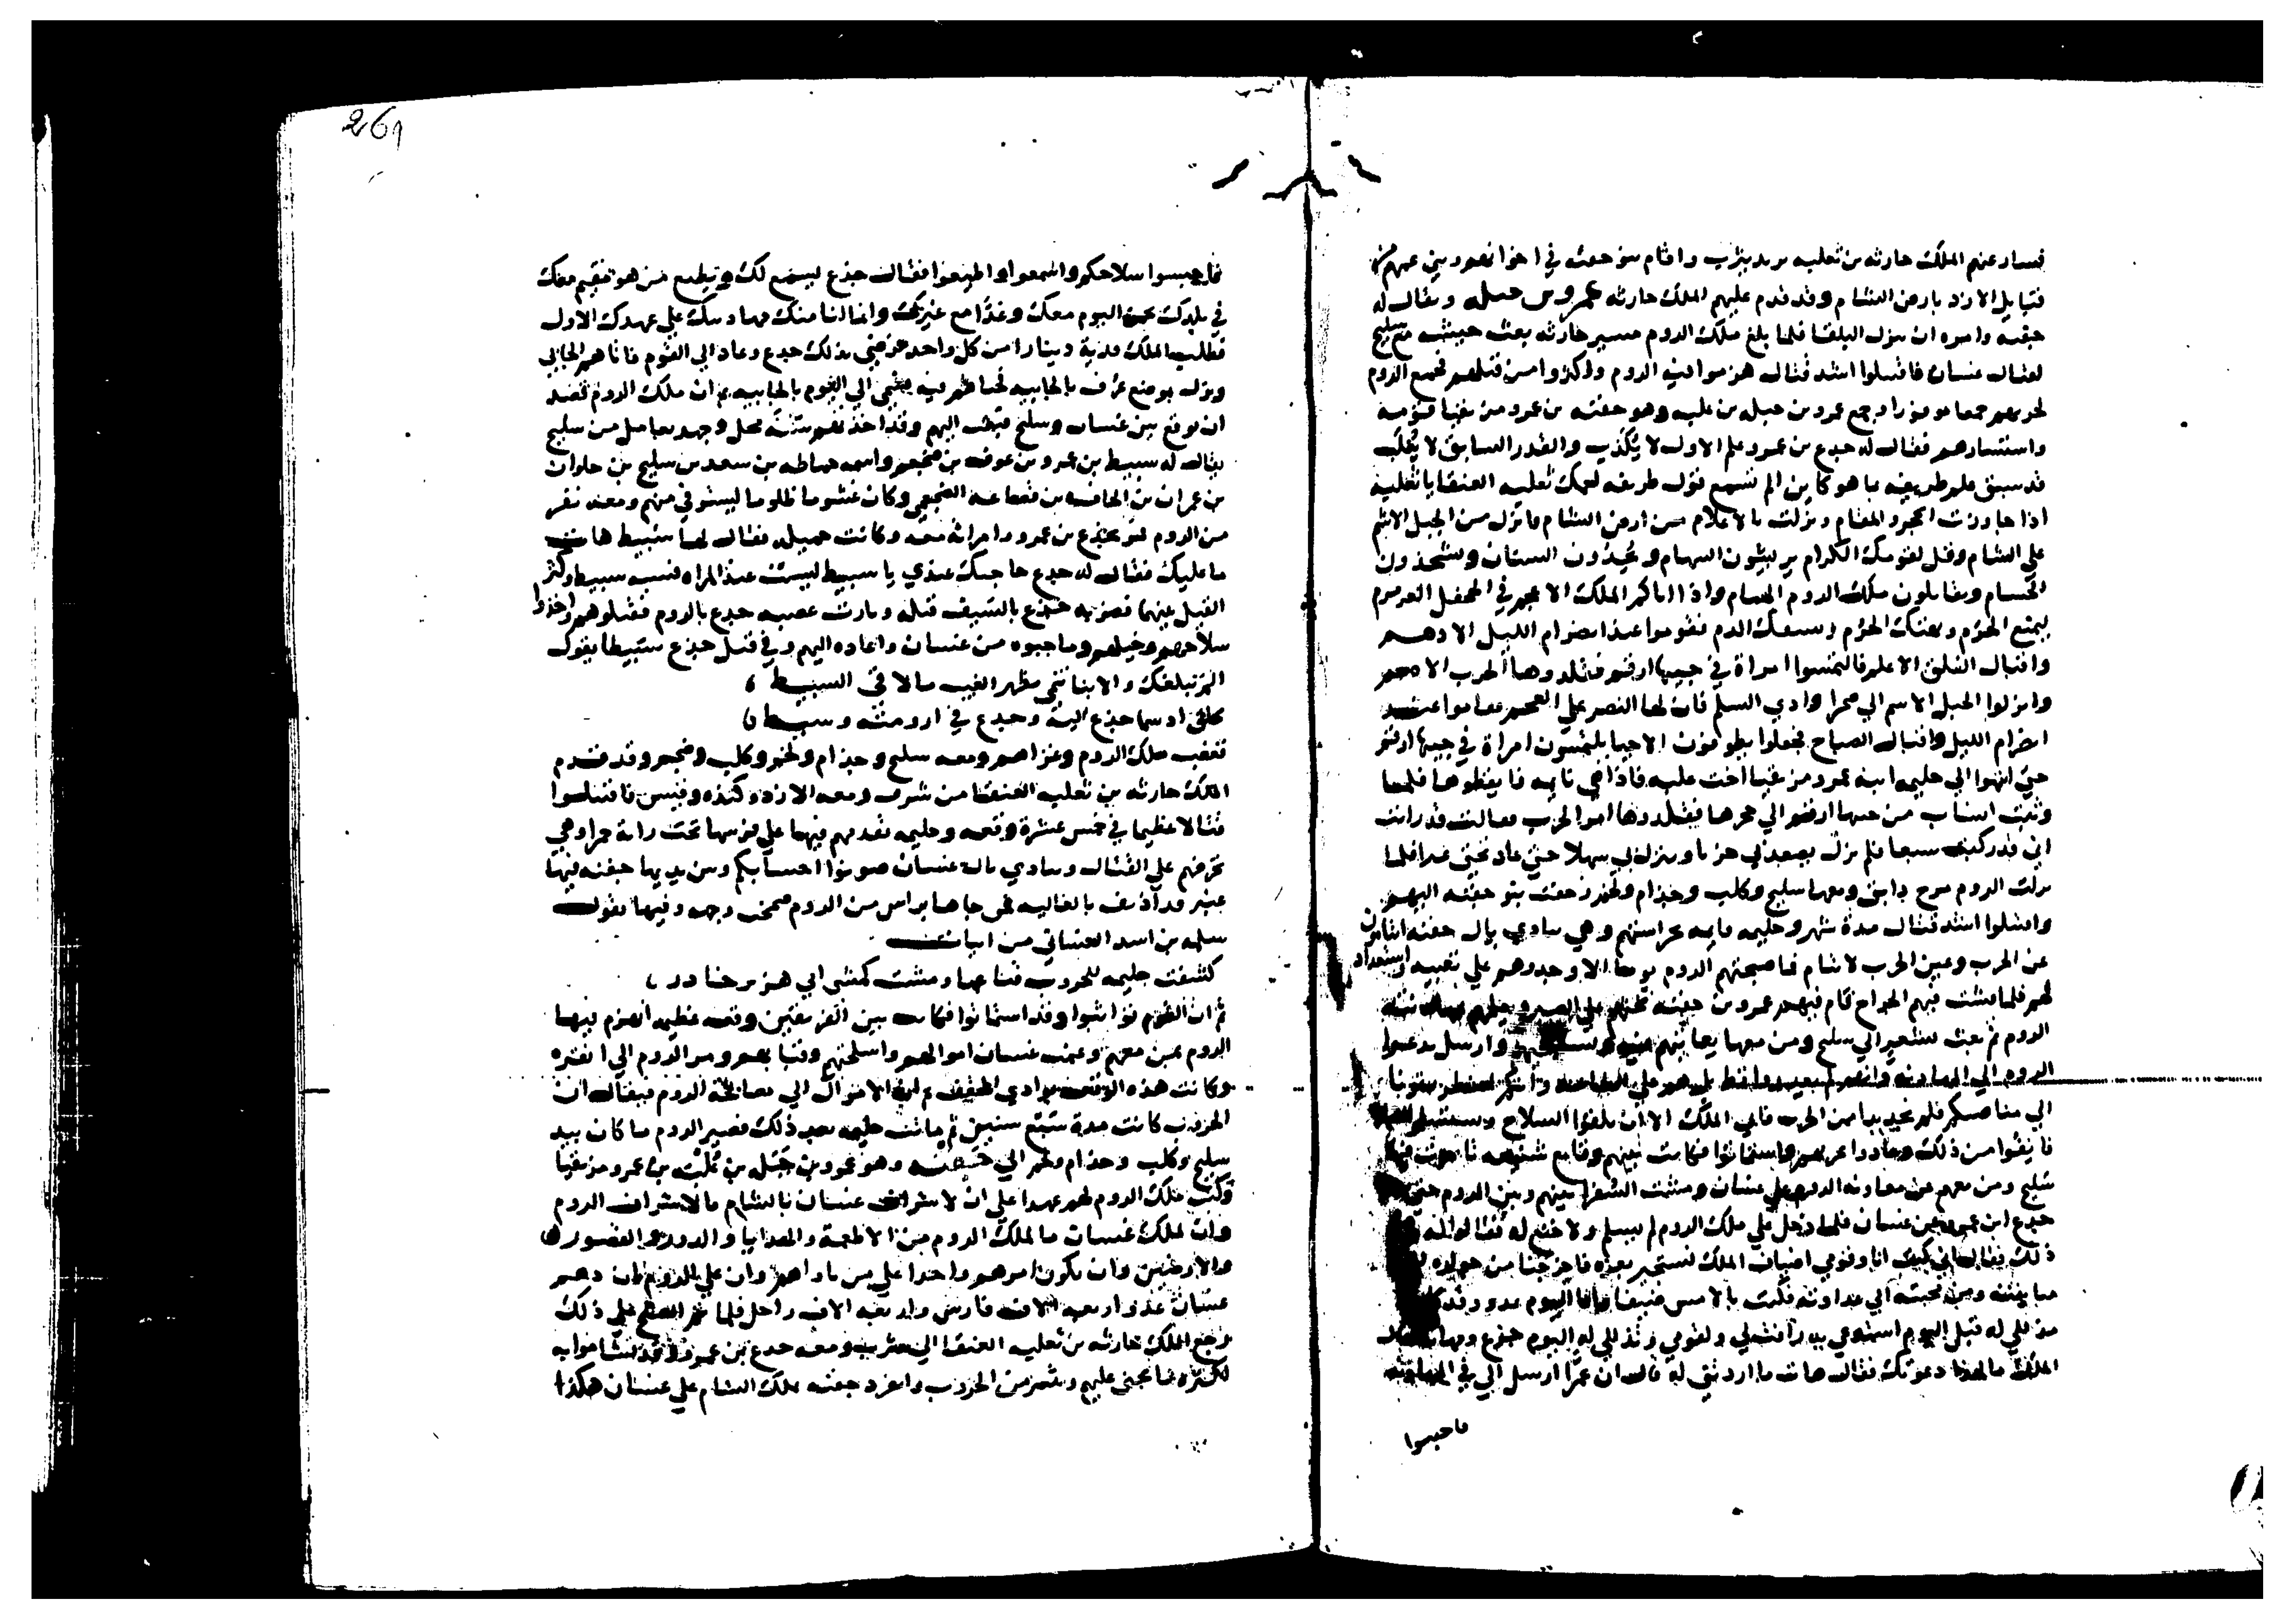 فسار عنهم الملك حارثه بن ثعلبه يريد يثرب واقام بنو جفنه في اخوانهم وبني عمهم من
قبايل الازد بارض الشام وقد قدم عليهم الملك حارثه عمرو بن جبله ويقال له
جفنه وامره ان ينزل البلقا فلما بلغ ملك الروم مسير حارثه بعث جيشه مع سليح
لقتال غسان فاقتتلوا اشد قتال هزموا فيه الروم واكثروا من قتلهم فجمع الروم
لحربهم جمعا موفورا وجمع عمرو بن جبله بن علبه وهو جفنه بن عمرو مزيقيا قومه
واستشارهم فقال له جدع بن عمرو علم الاول لا يكذب والقدر السابق لا يغلب
قد سبق علم طريفه بما هو كاين الم تسمع قول طريفه لعمك ثعلبه العنقا يا ثعلبه
اذا جاوزت الحجر والمقام ونزلت بالاعلام من ارض الشام فانزل من الجبل الاشم
علي الشام وقل لقومك الكرام يريشون السهام ويحدون السنان ويشحذون
الحسام ويقابلون ملك الروم الهمام واذا اتاكم الملك الاعجم في الجحفل العرمرم
يمنع الحرم وبهتك الحرم وسفك الدم فقوموا عند انصرام الليل الادهم
واقبال الفلق الاعلم فالتمسوا امراة في جيبها ارقم فقلدوها الحرب الاصم
وانزلوا الجبل الاشم الي صحرا وادي السلم فان لها النصر علي العجم فقاموا عند
انصرام الليل واقبال الصباح فجعلوا يطوفون الاحيا يلتمسون امراة في جيبها ارقم
حتي انتهوا الي حليمه ابنه عمرو مزيقيا اخت علبه فاذا هي نايمه فايقظوها فلما
وثبت انساب من جيبها ارقم الي حجرها فقلدوها امر الحرب فقالت قد رايت
اني قد ركبت سبعا فلم يزل يصعد بي حزنا وينزل بي سهلا حتي عاد تحتي عيرا فلما
نزلت الروم مرج دابق ومعها سليح وكلب وجذام ولخم زحفت بنو جفنه اليهم
واقتتلوا اشد قتال مدة شهر وحليمه قايمه بحراستهم وهي تنادي يال جفنه اتنامون
عن الحرب وعين الحرب لا تنام فما صبحتهم الروم يوما الا وجدوهم علي تعبيه واستعداد
لهم فلما فشت فيهم الجراح قام فيهم عمرو بن جفنه يحثهم علي الصبر
الروم ثم بعث بشعر الي سليح ومن معها يعاتبهم وارسل يدعوا
الروم الي المهادنه
الي مناصبكم فلم نجد بدا من الحرب فابي الملك الا ان يلقوا السلاح
فانفوا من ذلك وعادوا لحربهم واستماتوا فكانت بينهم وقايع شنيعه
سليح ومن معهم من معاونه الروم علي غسان ومشت السفرا بينهم وبين الروم حتي
جدع ابن عمرو من غسان فلما دخل علي ملك الروم لم يسلم ولا خضع له فقالوا له
ذلك فقال اني كيف انا وقومي اضياف الملك نستجير بعزه فاخرجنا من جواره
ضيافته ومن محبته الي عداوته فكنت بالامس ضيفا وانا اليوم عدو
تذللي له قبل اليوم استدعي به رافته لي ولقومي وتذللي له اليوم جزع ومهانه
الملك ما لهذا دعوتك فقال هات ما اردتني له قال ان عمرا ارسل الي في المهادنه
فاحبسوا
261
فاحبسوا سلاحكم واسمعوا واطيعوا فقال جذع ليسمع لك ويطيع من هو مقيم معك
في بلدك نحن اليوم معك وغدا مع غيرك وانما لنا منك مهادنتك علي عهدك الاول
فطلب الملك فدية دينارا من كل واحد فرضي بذلك جدع وعاد الي القوم فاتاهم الجابي
ونزل بموضع عرف بالجابيه
ان يوقع بين غسان وسليح فبعث اليهم وقد اخذتهم سنة محل وجهد بعامل من سليح
يقال له سبيط بن عمرو بن عوف بن ضجعم واسمه حماطه بن سعد بن سليح بن حلوان
بن عمران بن الحاف بن قضاعه الضجعمي وكان غشوما ظلوما ليستوفي منهم ومعه نفر
من الروم فمر بجذع بن عمرو وامراته معه وكانت جميله فقال لها سبيط هات
ما عليك فقال له جدع حاجتك عندي يا سبيط ليست عند المراه فسبه سبيط وكثر
القيل بينهما فضربه جذع بالسيف فقتله وثارت عصبه جدع بالروم فقتلوهم واخذوا
سلاحهم وخيلهم وما جبوه من غسان واعاده اليهم وفي قتل جذع سبيطا يقول
الم تبلغك والابنا تنمي بظهر الغيب ما لاقي السبيط
فغضب ملك الروم وغزاهم ومعه سليح وجذام ولخم وكلب وضجعم وقد قدم
الملك حارثه بن ثعلبه العنقا من يثرب ومعه الازد وكنده وقيس فاقتتلوا
قتالا عظيما في خمس عشرة وقعه وحليمه تقدمهم فيها علي فرسها تحت راية حمرا وهي
تحرضهم علي القتال وتنادي يالة غسان صونوا احسابكم وبين يديها جفنه فيها
عنبر قد اذيف بالغاليه فمن جاها براس من الروم ضمخت وجهه وفيها يقول
سلمه بن اسد الغساني من ابيات
كشفت حليمه للحروب قناعها ومشت كمشي ابي هزبر خادر
ثم ان القوم تواثبوا وقد استماتوا فكانت بين الفريقين وقعه عظيمه انهزم فيها
الروم بمن معهم وغنمت غسان اموالهم واسلحتهم وقبابهم ومر الروم الي انقره
وكانت هذه الوقعه بوادي الحفيف ثم ال الامر الي مصالحة الروم فيقال ان
الحروب كانت مدة سبع سنين ثم ماتت حليمه بعد ذلك فصير الروم ما كان بيد
سليح وكلب وجذام ولخم الي جفنه وهو عمرو بن جبله بن علبه بن عمرو مزيقيا
وكتب ملك الروم لهم عهدا علي ان لاشراف غسان بالشام ما لاشراف الروم
وان لملك غسان ما لملك الروم من الاطعمة والهدايا والدور والقصور
والارضين وان يكون امرهم واحدا علي من ناواهم وان علي الروم ان دهم
غسان عدو اربعه الاف فارس واربعه الاف راجل فلما تم الصلح علي ذلك
رجع الملك حارثه بن ثعلبه العنقا الي يثرب ومعه جدع بن عمرو وقد تشاموا به
لكثرة ما يجني عليهم ويثير من الحروب وانفرد جفنه بملك الشام علي غسان هكذا